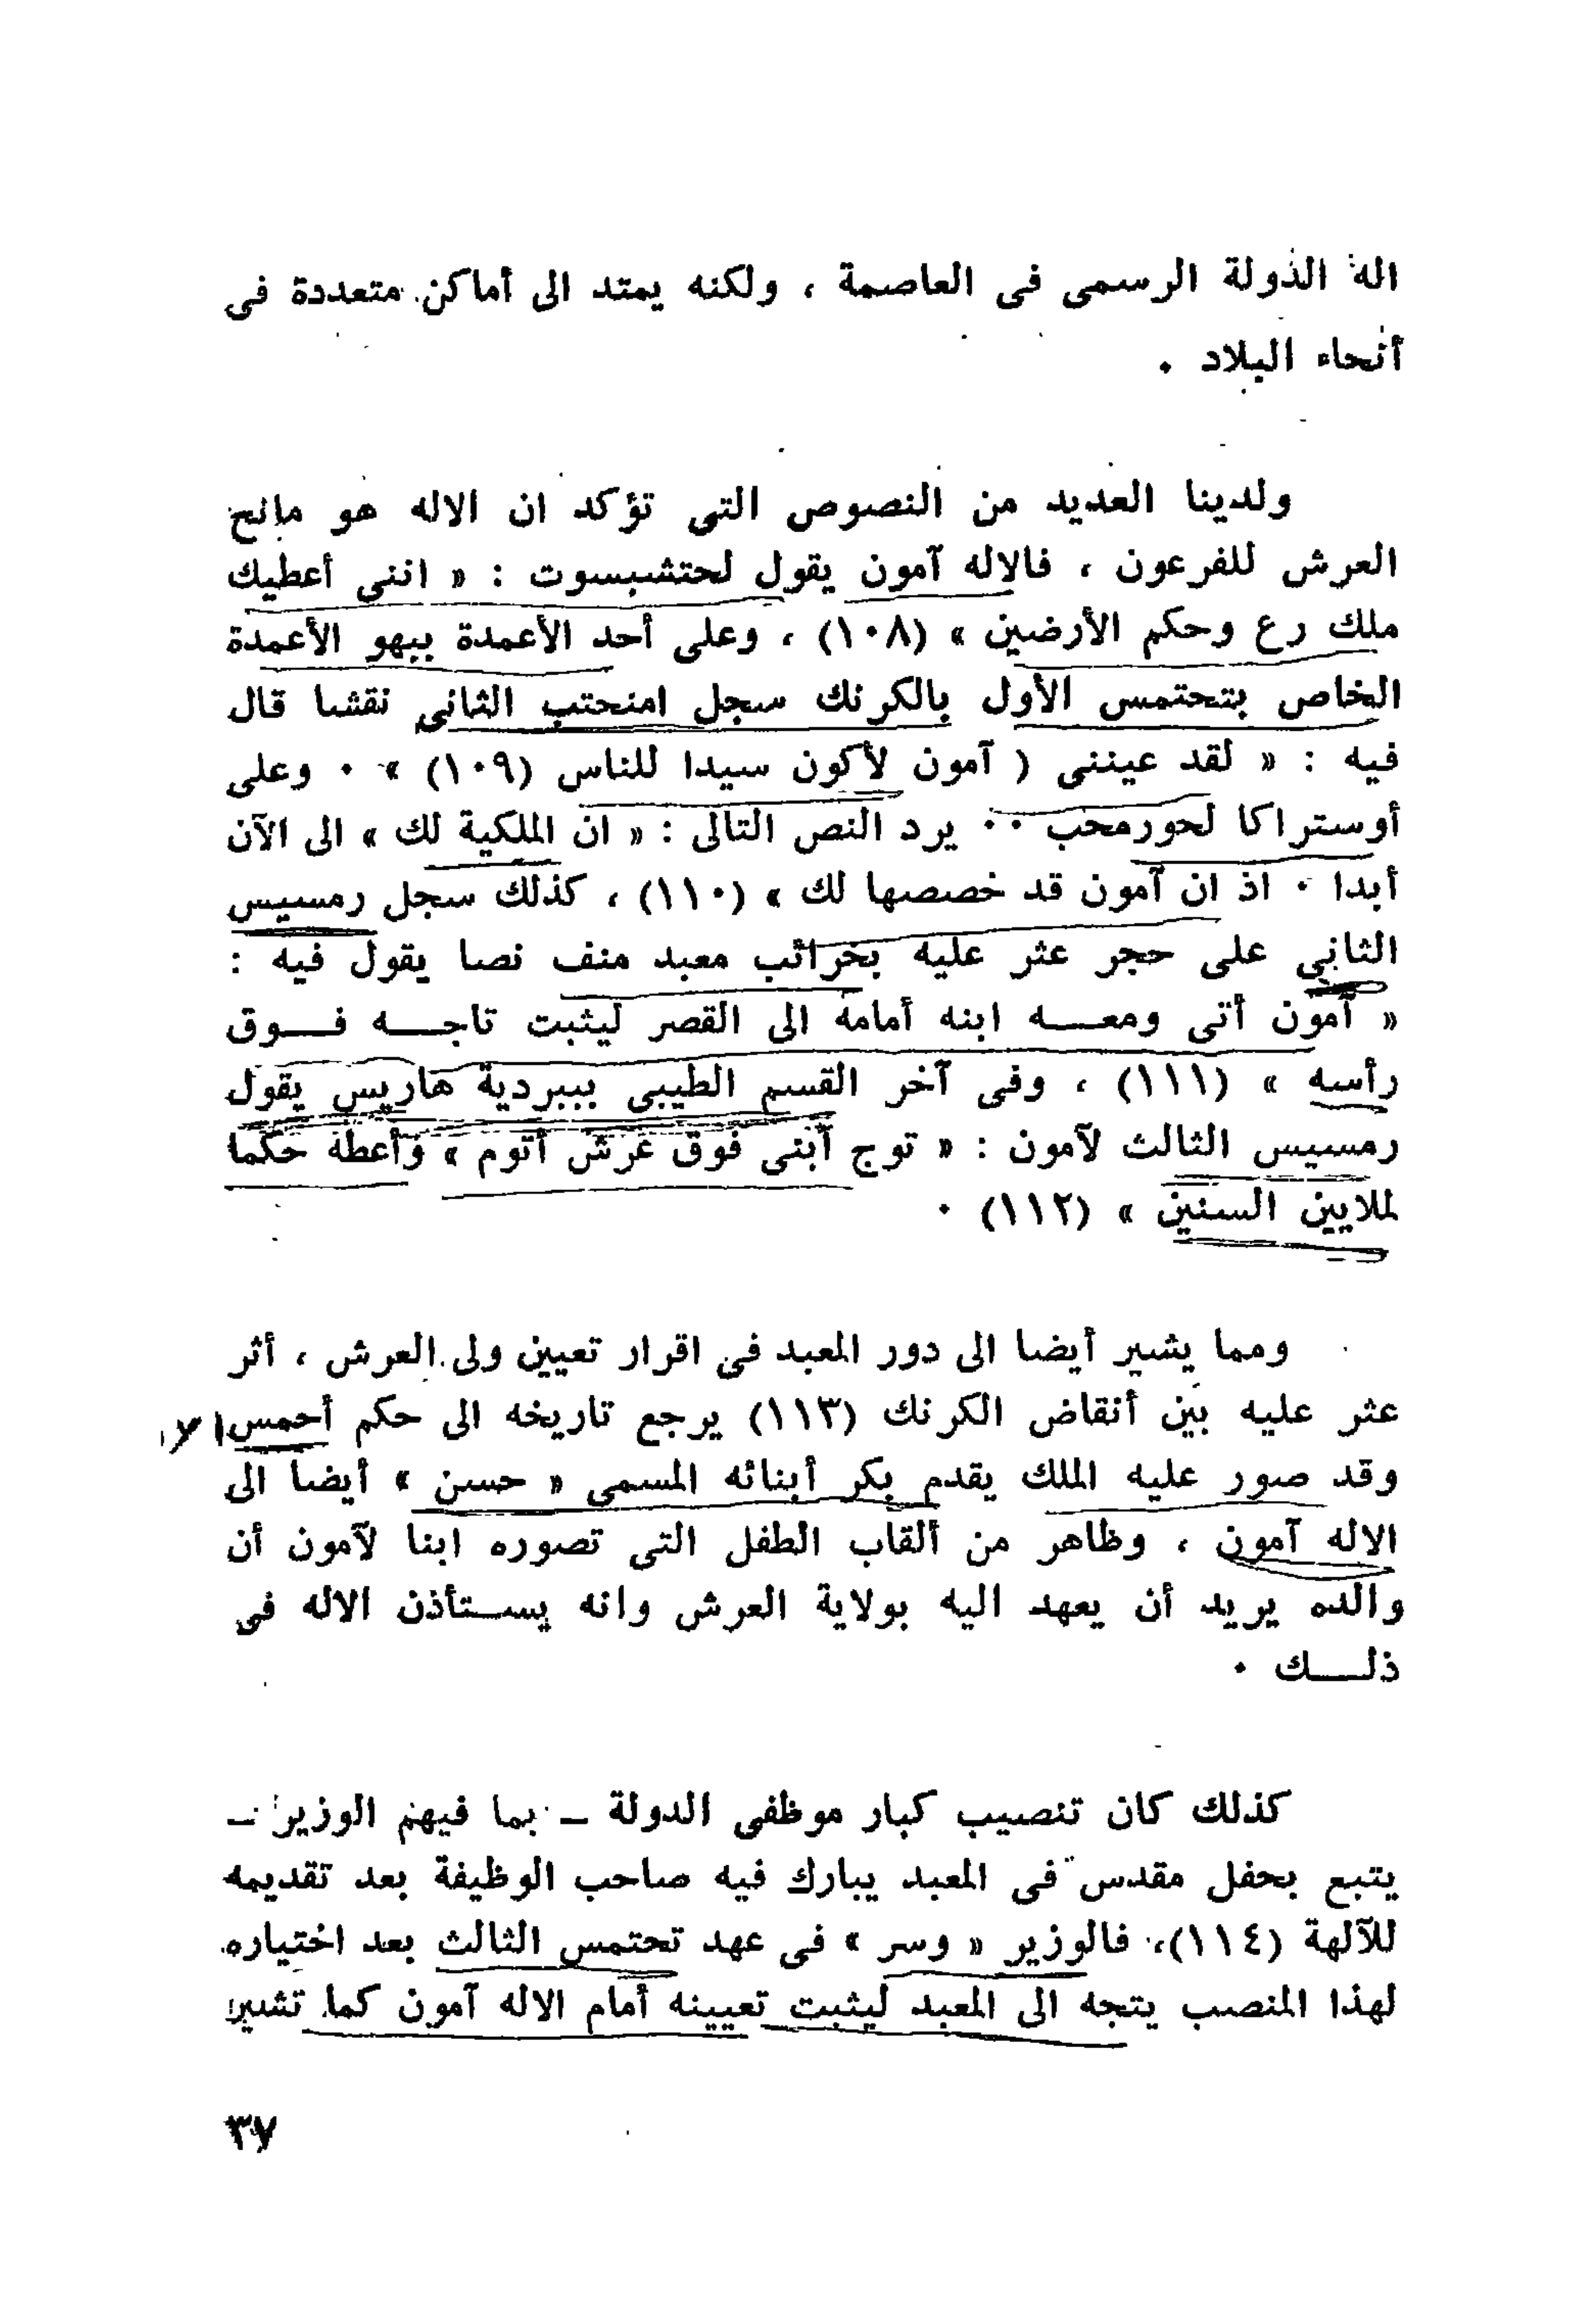 اله الدولة الرسمى فى العاصمة ، ولكنه يمتد الى أماكن متعددة فى
أنحاء البلاد ٠
ولدينا العديد من النصوص التى تؤكد ان الاله هو مانح
العرش للفرعون ، فالاله آمون يقول لحتشبسوت : « اننى أعطيك
ملك رع وحكم الأرضين » (١٠٨) ، وعلى أحد الأعمدة ببهو الأعمدة
الخاص بتحتمس الأول بالكرنك سجل امنحتب الثانى نقشا قال
فيه : « لقد عيننى ( آمون لأكون سيدا للناس (١٠٩) » ٠ وعلى
أوستراكا لحورمحب ٠٠ يرد النص التالى : « ان الملكية لك » الى الآن
أبدا ٠ اذ ان آمون قد خصصها لك » (١١٠) ، كذلك سجل رمسيس
الثانى على حجر عثر عليه بخرائب معبد منف نصا يقول فيه :
« آمون أتى ومعـــه ابنه أمامه الى القصر ليثبت تاجـــه فـــوق
رأسه » (١١١) ، وفى آخر القسم الطيبى ببردية هاريس يقول
رمسيس الثالث لآمون : « توج ابنى فوق عرش أتوم » وأعطه حكما
لملايين السنين » (١١٢) ٠
ومما يشير أيضا الى دور المعبد فى اقرار تعيين ولى العرش ، أثر
عثر عليه بين أنقاض الكرنك (١١٣) يرجع تاريخه الى حكم أحمس
وقد صور عليه الملك يقدم بكر أبنائه المسمى « حسن » أيضا الى
الاله آمون ، وظاهر من ألقاب الطفل التى تصوره ابنا لآمون أن
والده يريد أن يعهد اليه بولاية العرش وانه يســتأذن الاله فى
ذلـــك ٠
كذلك كان تنصيب كبار موظفى الدولة ـ بما فيهم الوزير ـ
يتبع بحفل مقدس فى المعبد يبارك فيه صاحب الوظيفة بعد تقديمه
للآلهة (١١٤)، فالوزير « وسر » فى عهد تحتمس الثالث بعد اختياره
لهذا المنصب يتجه الى المعبد ليثبت تعيينه أمام الاله آمون كما تشير
٣٧